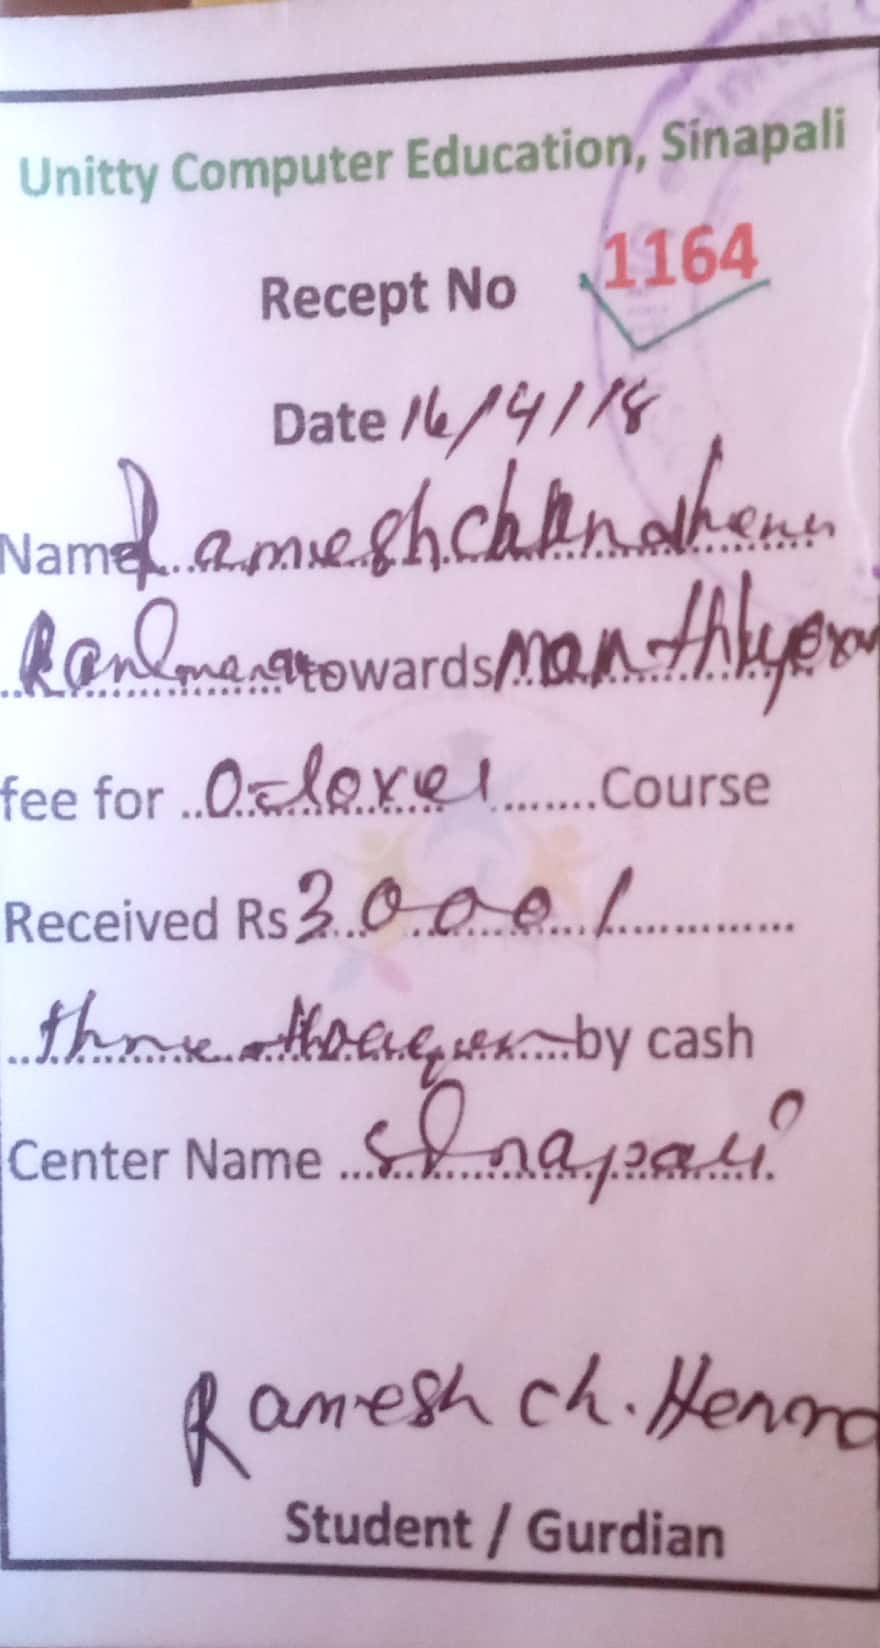 Unitty Computer Education, Sinapali
Recept No 1164
Date 16/4/18
Name Ramesh
towards Monthly
fee for O-level Course
Received Rs 3000/
by cash
Center Name Sinapali
Ramesh ch. Henna
Student / Gurdian